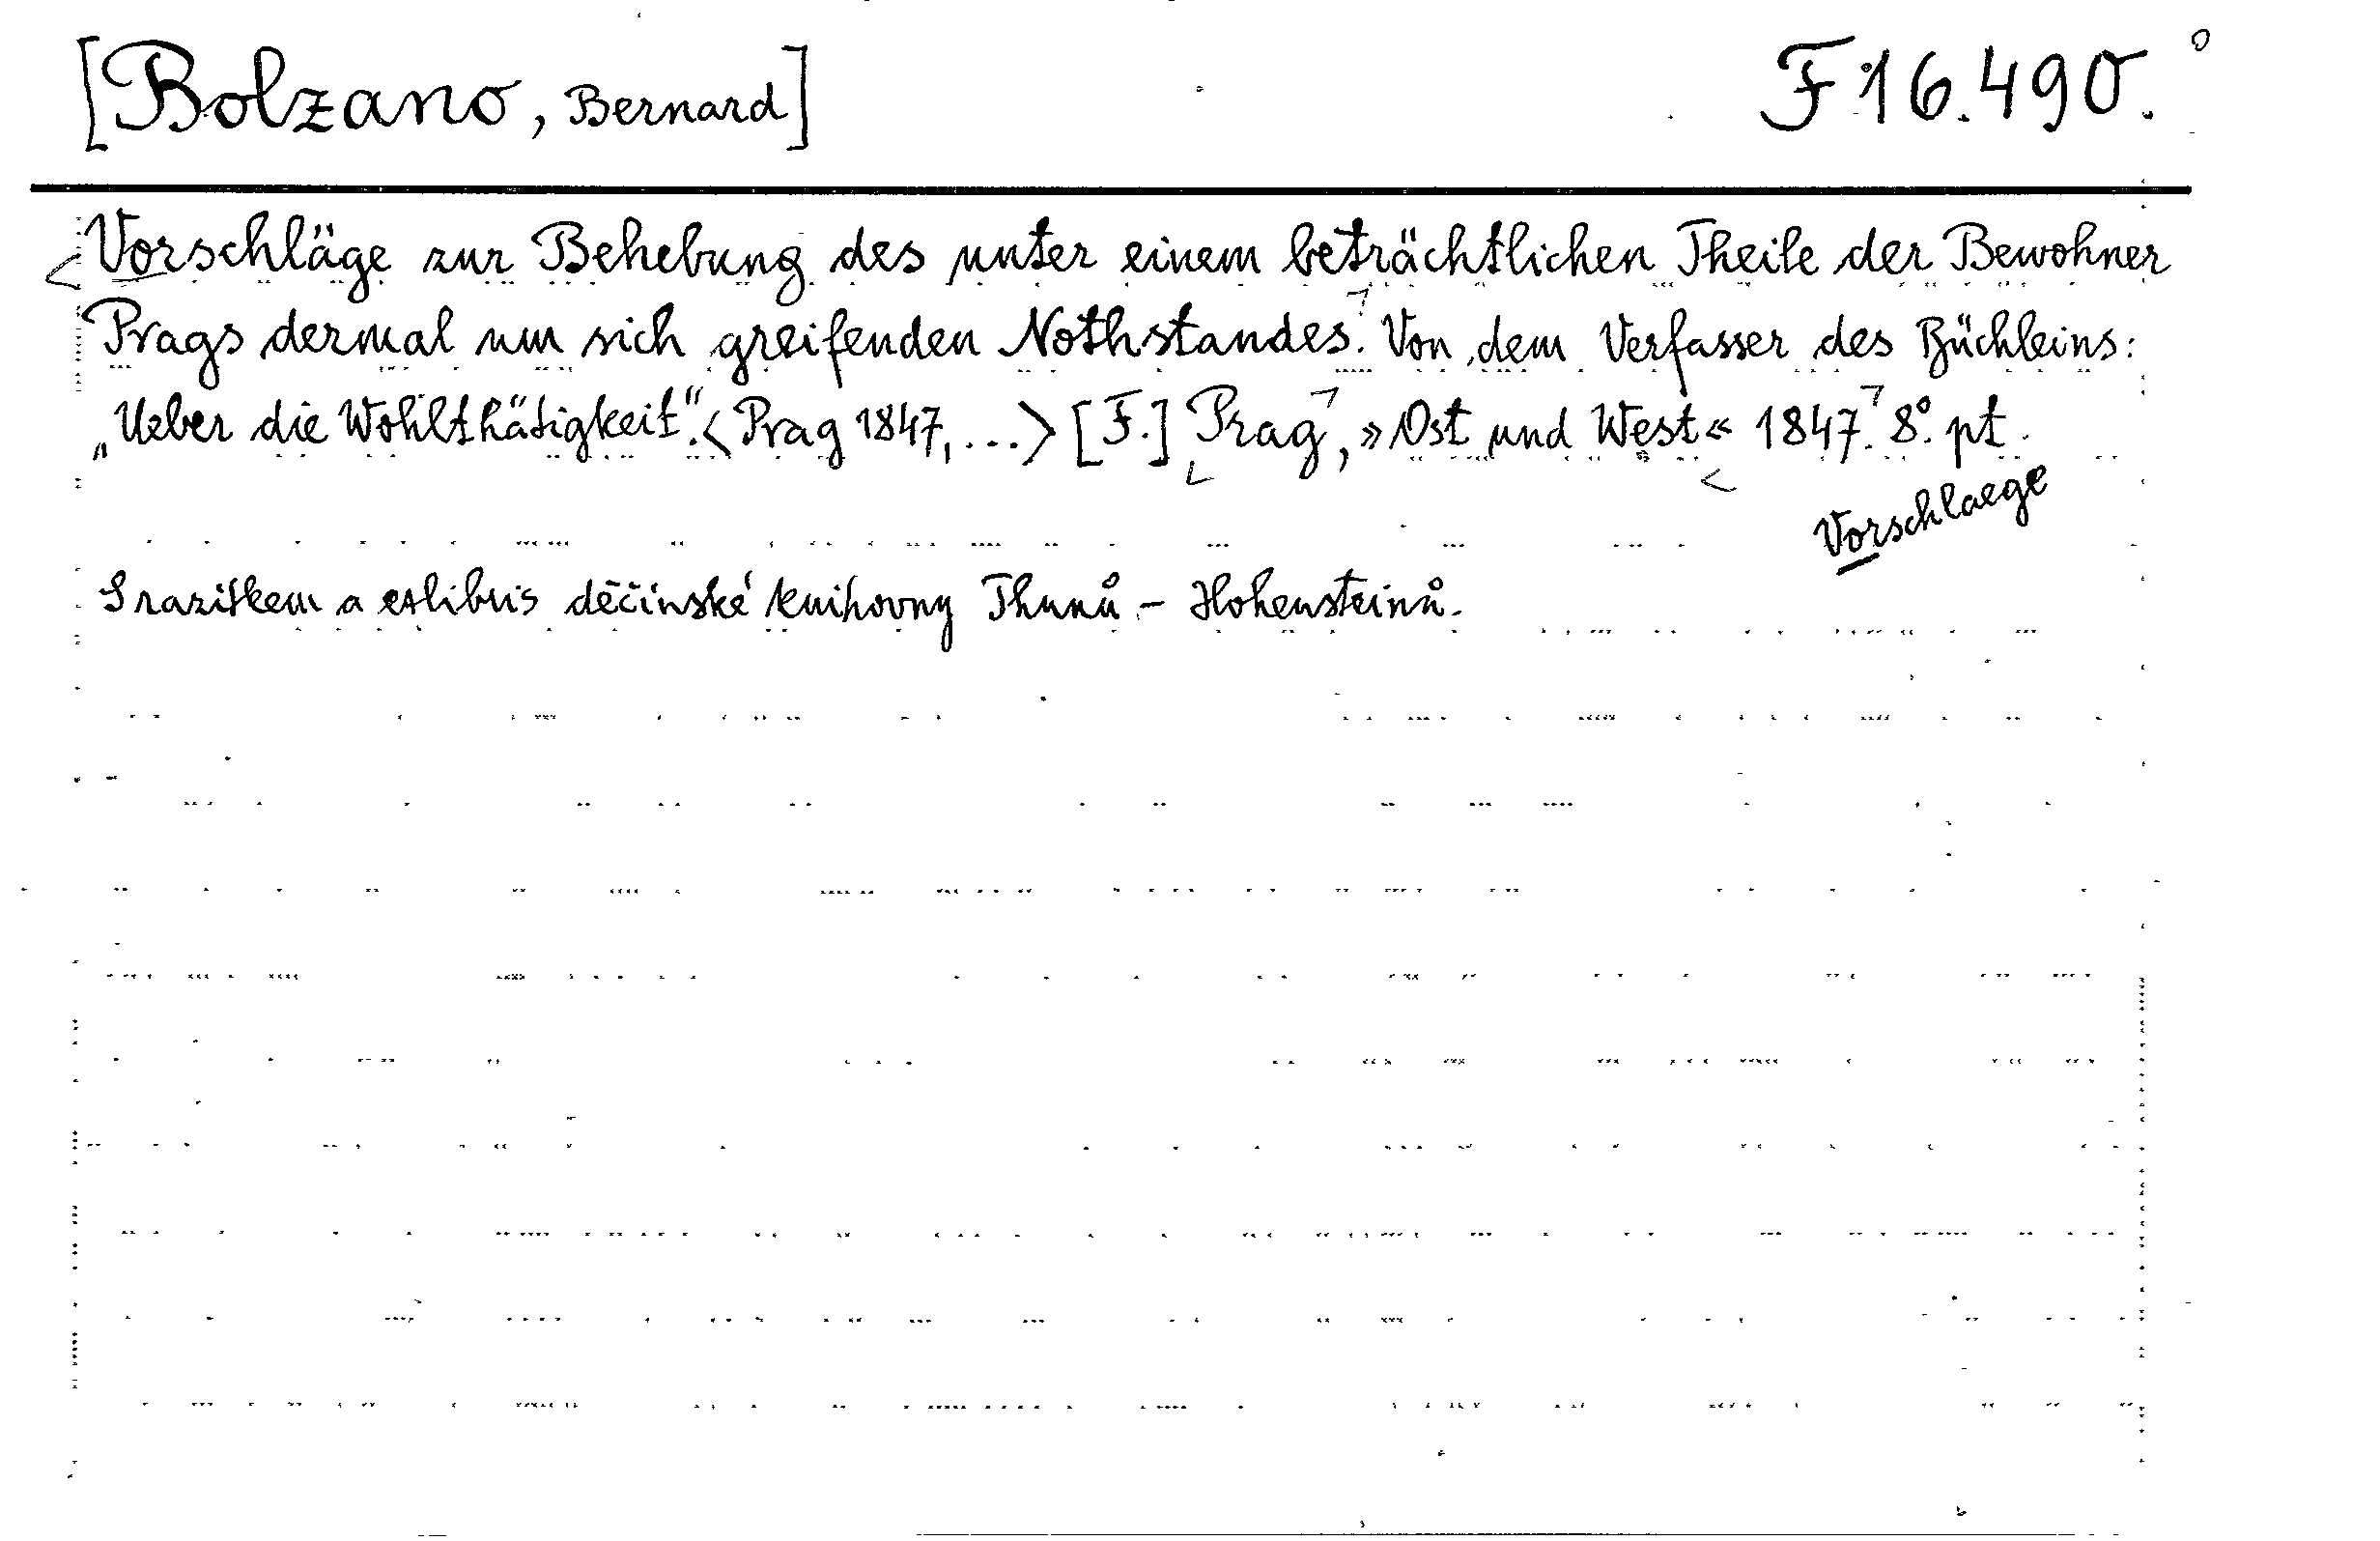 [Bolzano, Bernard] F 16.490.
Vorschläge zur Behebung des unter einem beträchtlichen Theile der Bewohner
Prags dermal um sich greifenden Nothstandes. Von dem Verfasser des Büchleins:
„Ueber die Wohlthätigkeit“. <Prag 1847, ...> [F.] Prag, »Ost und West« 1847. 8°. pt.
Vorschlaege
S razítkem a exlibris děčínské knihovny Thunů - Hohensteinů.